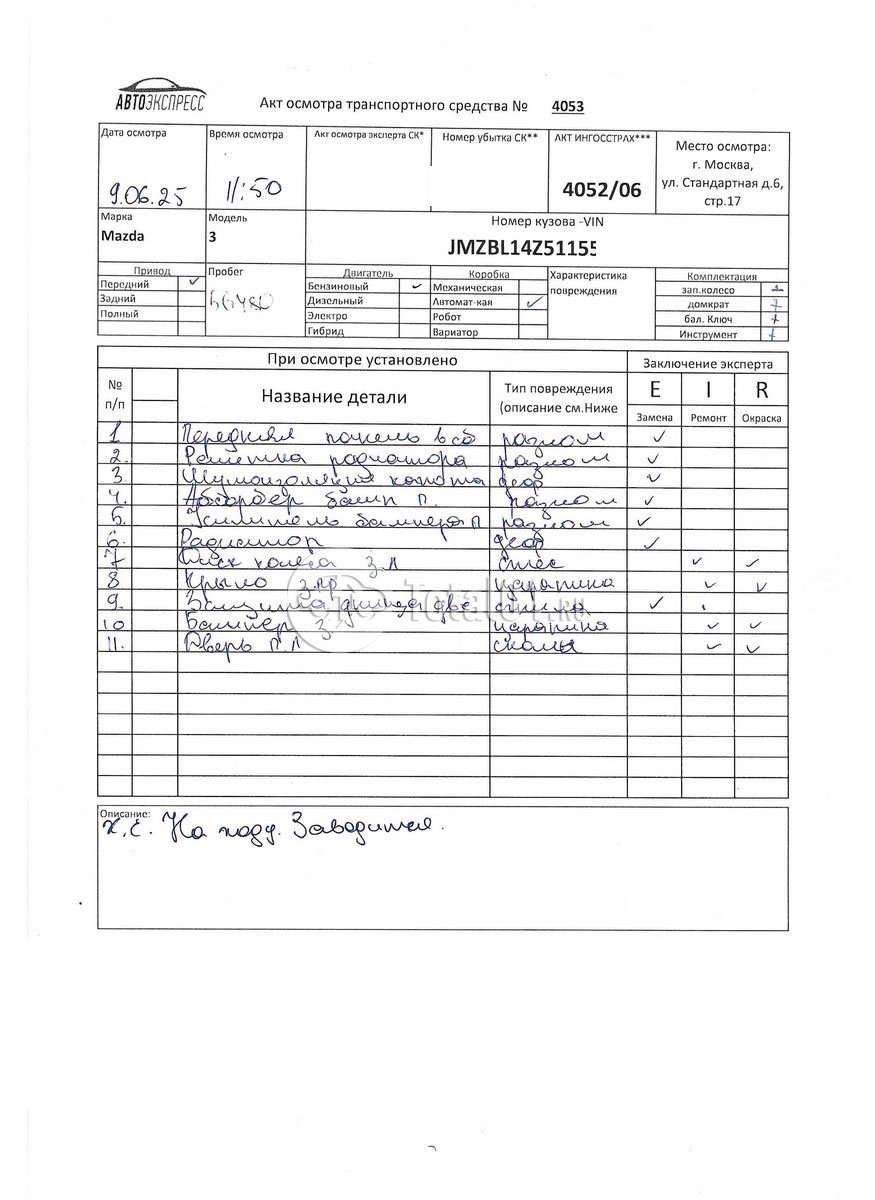 АВТОЭКСПРЕСС
Акт осмотра транспортного средства № 4053
Дата осмотра Время осмотра Акт осмотра эксперта СК* Номер убытка СК** АКТ ИНГОССТРАХ*** Место осмотра:
г. Москва,
9.06.25 11:50 4052/06 ул. Стандартная д.6,
стр.17
Марка Модель Номер кузова -VIN
Mazda 3 JMZBL14Z51155
Привод Пробег Двигатель Коробка Характеристика Комплектация
Передний ✓ Бензиновый ✓ Механическая повреждения зап.колесо
Задний 56480 Дизельный Автомат-кая ✓ домкрат +
Полный Электро Робот бал. Ключ +
Гибрид Вариатор Инструмент +
При осмотре установлено Заключение эксперта
№ п/п Название детали Тип повреждения (описание см.Ниже E I R
Замена Ремонт Окраска
1 Передняя панель в сб разлом ✓
2. Решетка радиатора разлом ✓
3 Шумоизоляция капота деф ✓
4. Абсорбер бамп П. разлом ✓
5. Усилитель бампера П разлом ✓
6. Радиатор деф ✓
7 Диск колеса З.Л ✓ ✓
8 Крыло З.пр царапина ✓ ✓
9. Защита днища две ✓
10 Бампер З царапина ✓ ✓
11. Дверь П.Л сколы ✓ ✓
TotalCar.RU
Описание:
Х.С. На ходу. Заводится.